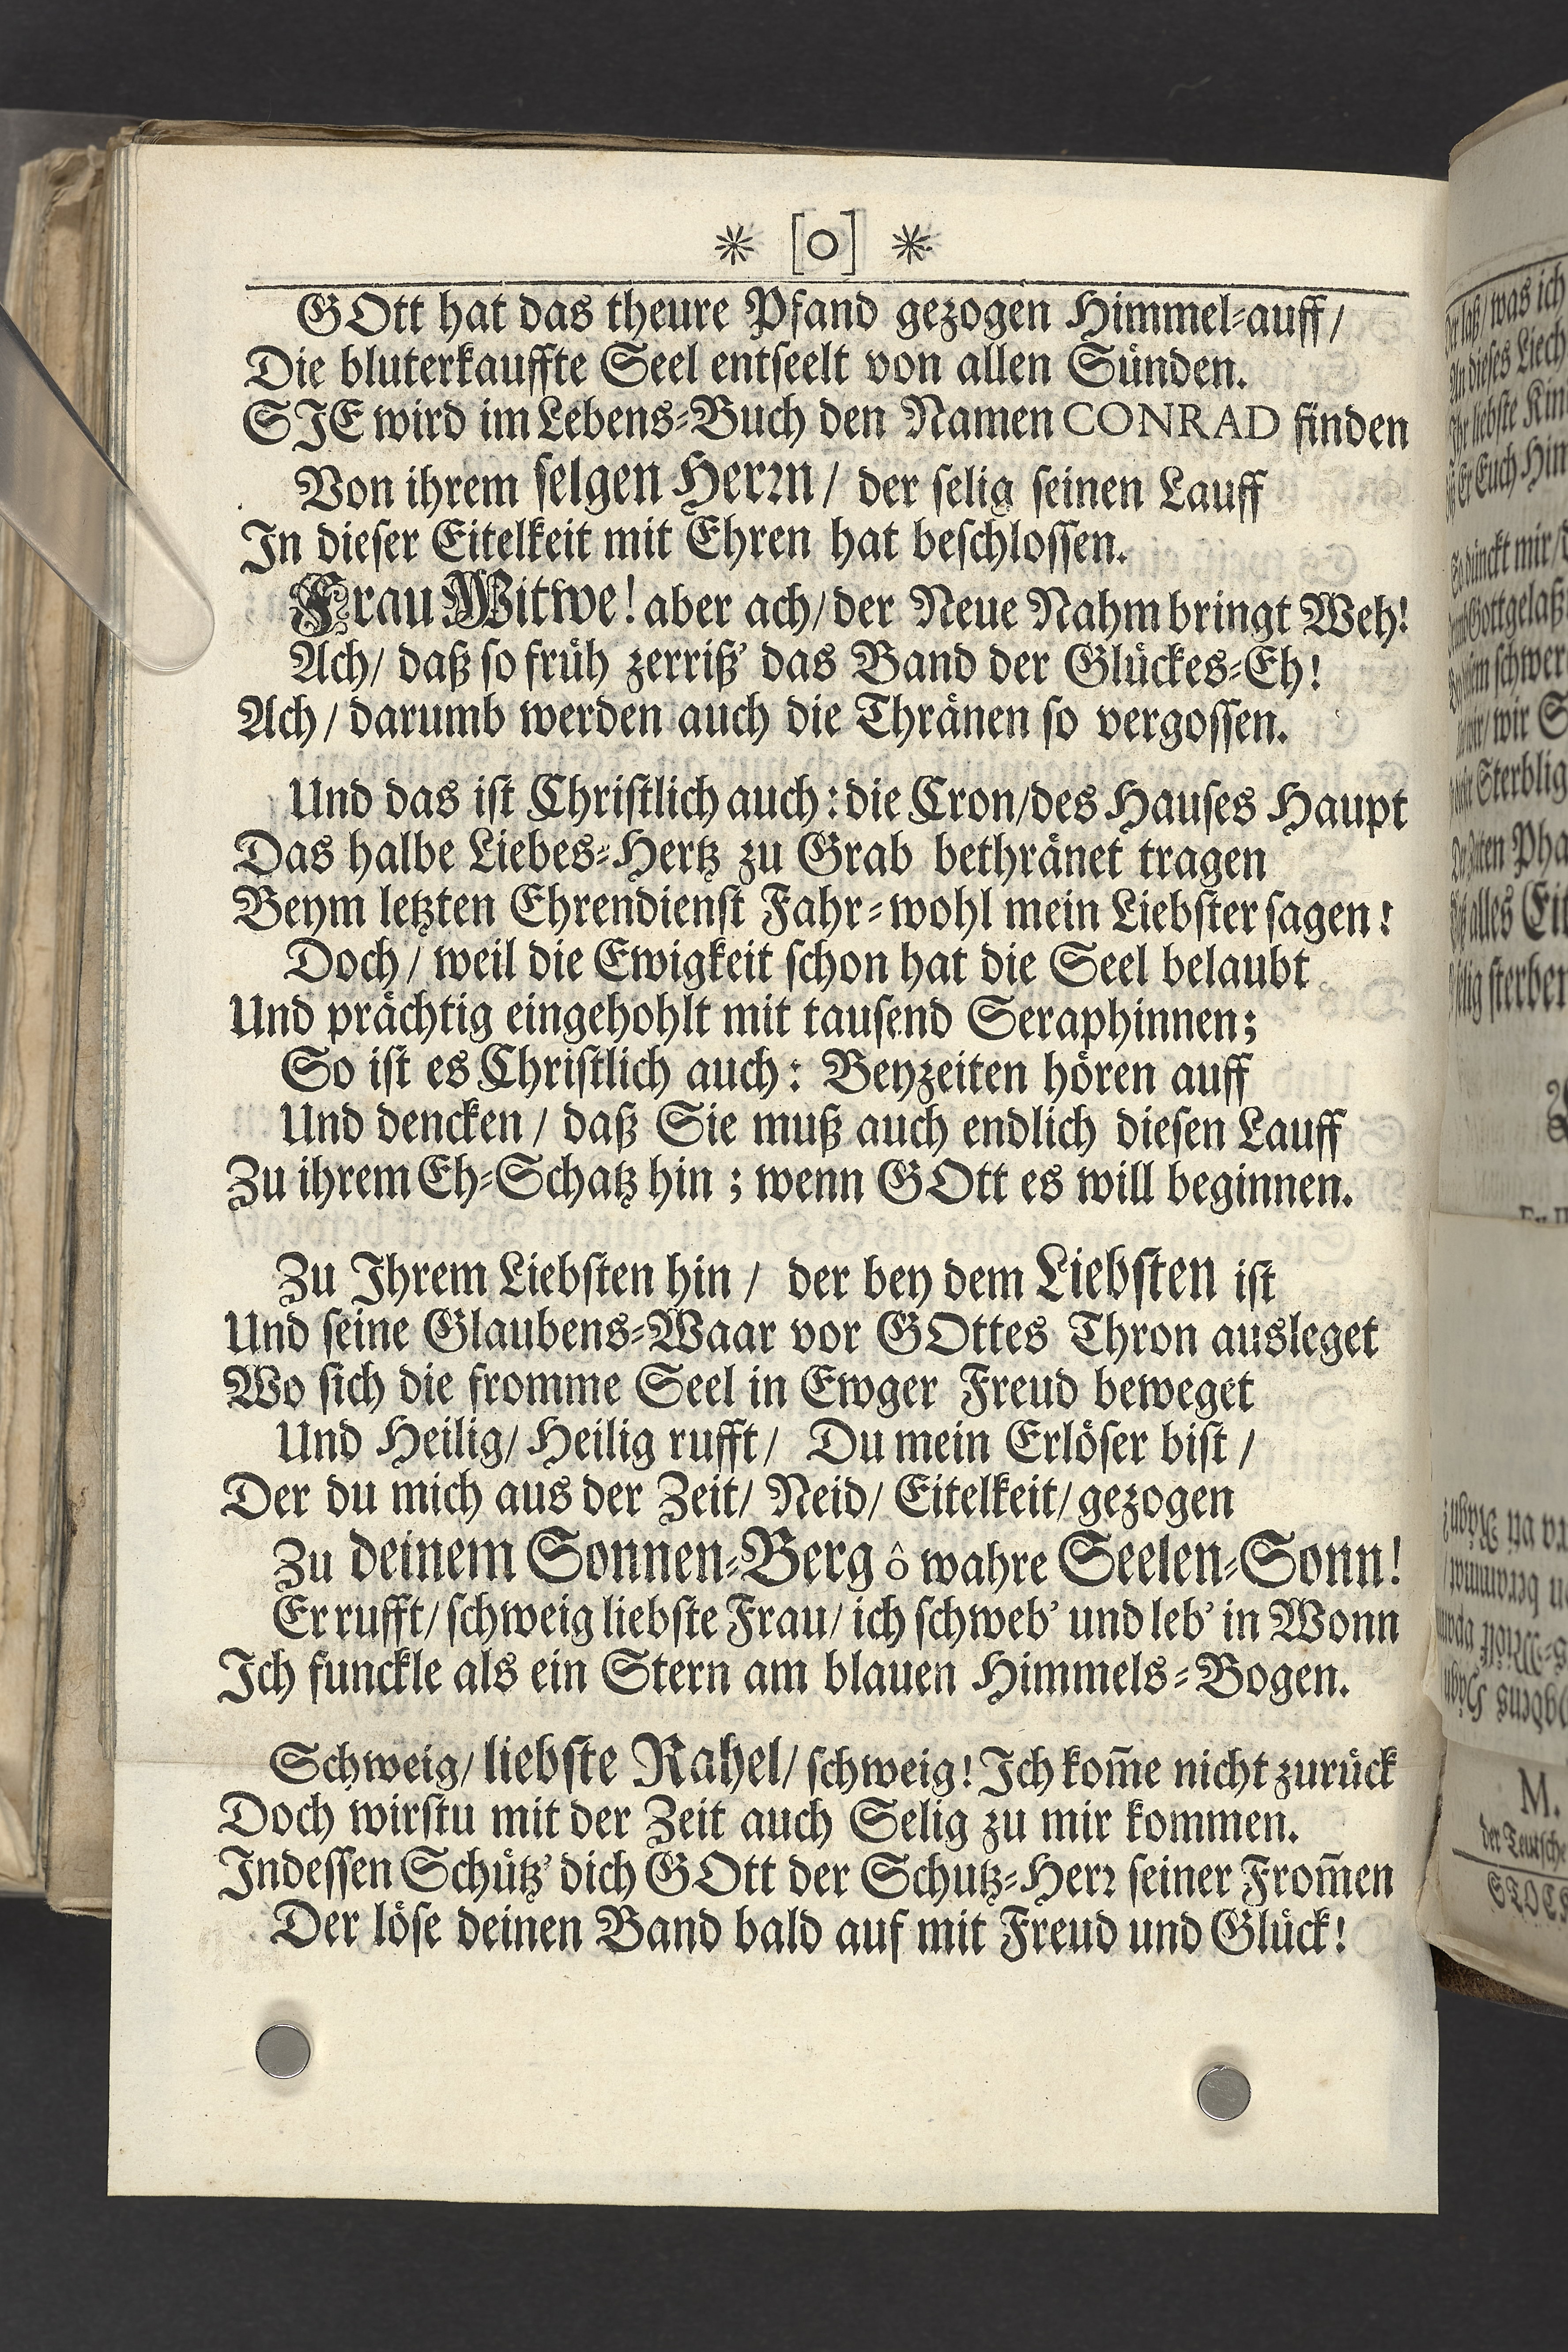 * [O] *
GOtt hat das theure Pfand gezogen Himmel-auff/
Die bluterkauffte Seel entseelt von allen Sünden.
SJE wird im Lebens-Buch den Namen CONRAD finden
Von ihrem selgen Herꝛn/ der selig seinen Lauff
Jn dieser Eitelkeit mit Ehren hat beschlossen.
Frau Witwe! aber ach/ der Neue Nahm bringt Weh!
Ach/ daß so früh zerriß' das Band der Glückes-Eh!
Ach/ darumb werden auch die Thränen so vergossen.
Und das ist Christlich auch: die Cron/des Hauses Haupt
Das halbe Liebes-Hertz zu Grab bethränet tragen
Beym letzten Ehrendienst Fahr-wohl mein Liebster sagen!
Doch/ weil die Ewigkeit schon hat die Seel belaubt
Und prächtig eingehohlt mit tausend Seraphinnen;
So ist es Christlich auch: Beyzeiten hören auff
Und dencken/ daß Sie muß auch endlich diesen Lauff
Zu ihrem Eh-Schatz hin; wenn GOtt es will beginnen.
Zu Jhrem Liebsten hin/ der bey dem Liebsten ist
Und seine Glaubens-Waar vor GOttes Thron ausleget
Wo sich die fromme Seel in Ewger Freud beweget
Und Heilig/ Heilig rufft/ Du mein Erlöser bist/
Der du mich aus der Zeit/ Neid/ Eitelkeit/ gezogen
Zu deinem Sonnen-Berg ô wahre Seelen-Sonn!
Er rufft/ schweig liebste Frau/ ich schweb' und leb' in Wonn
Jch funckle als ein Stern am blauen Himmels-Bogen.
Schweig/ liebste Rahel/ schweig! Jch kom̃e nicht zurück
Doch wirstu mit der Zeit auch Selig zu mir kommen.
Jndessen Schütz' dich GOtt der Schutz-Herꝛ seiner From̃en
Der löse deinen Band bald auf mit Freud und Glück!